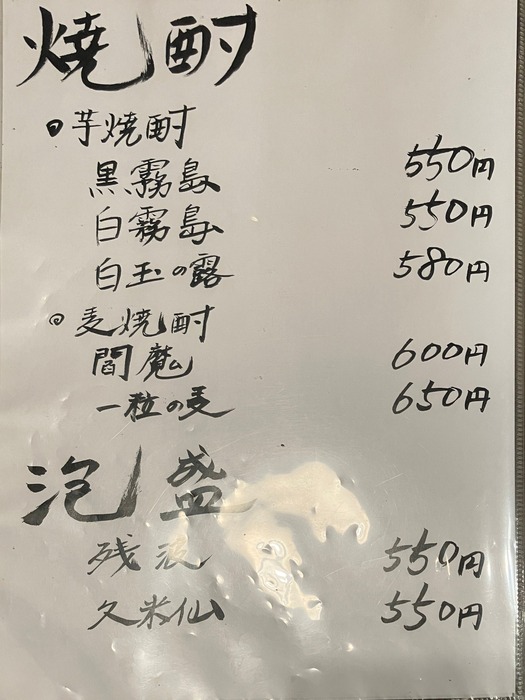 焼酎
◎芋焼酎
黒霧島 550円
白霧島 550円
白玉の露 580円
◎麦焼酎
閻魔 600円
一粒の麦 650円
泡盛
残波 550円
久米仙 550円